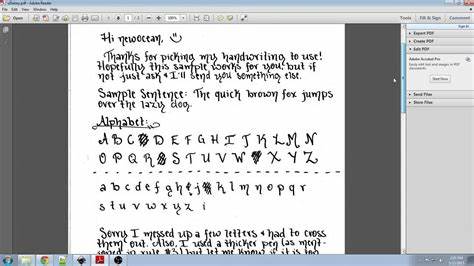 Adobe Reader
Hi newocean, ☺
Thanks for picking my handwriting to use!
Hopefully this sample works for you! but if
not just ask & I'll send you something else.
Sample Sentence: The quick brown fox jumps
over the lazy dog.
Alphabet:
A B C D E F G H I J K L M N
O P Q R S T U V W X Y Z
a b c d e f g h j k l m n o p q r
s t u v w x y z i
Sorry I messed up a few letters & had to cross
them out. Also, I used a thicker pen (as ment-
ioned in rule #3) but let me know if it is too
Export PDF
Create PDF
Edit PDF
Adobe Acrobat Pro
Easily edit text and images in PDF
documents
Start Now
Send Files
Store Files